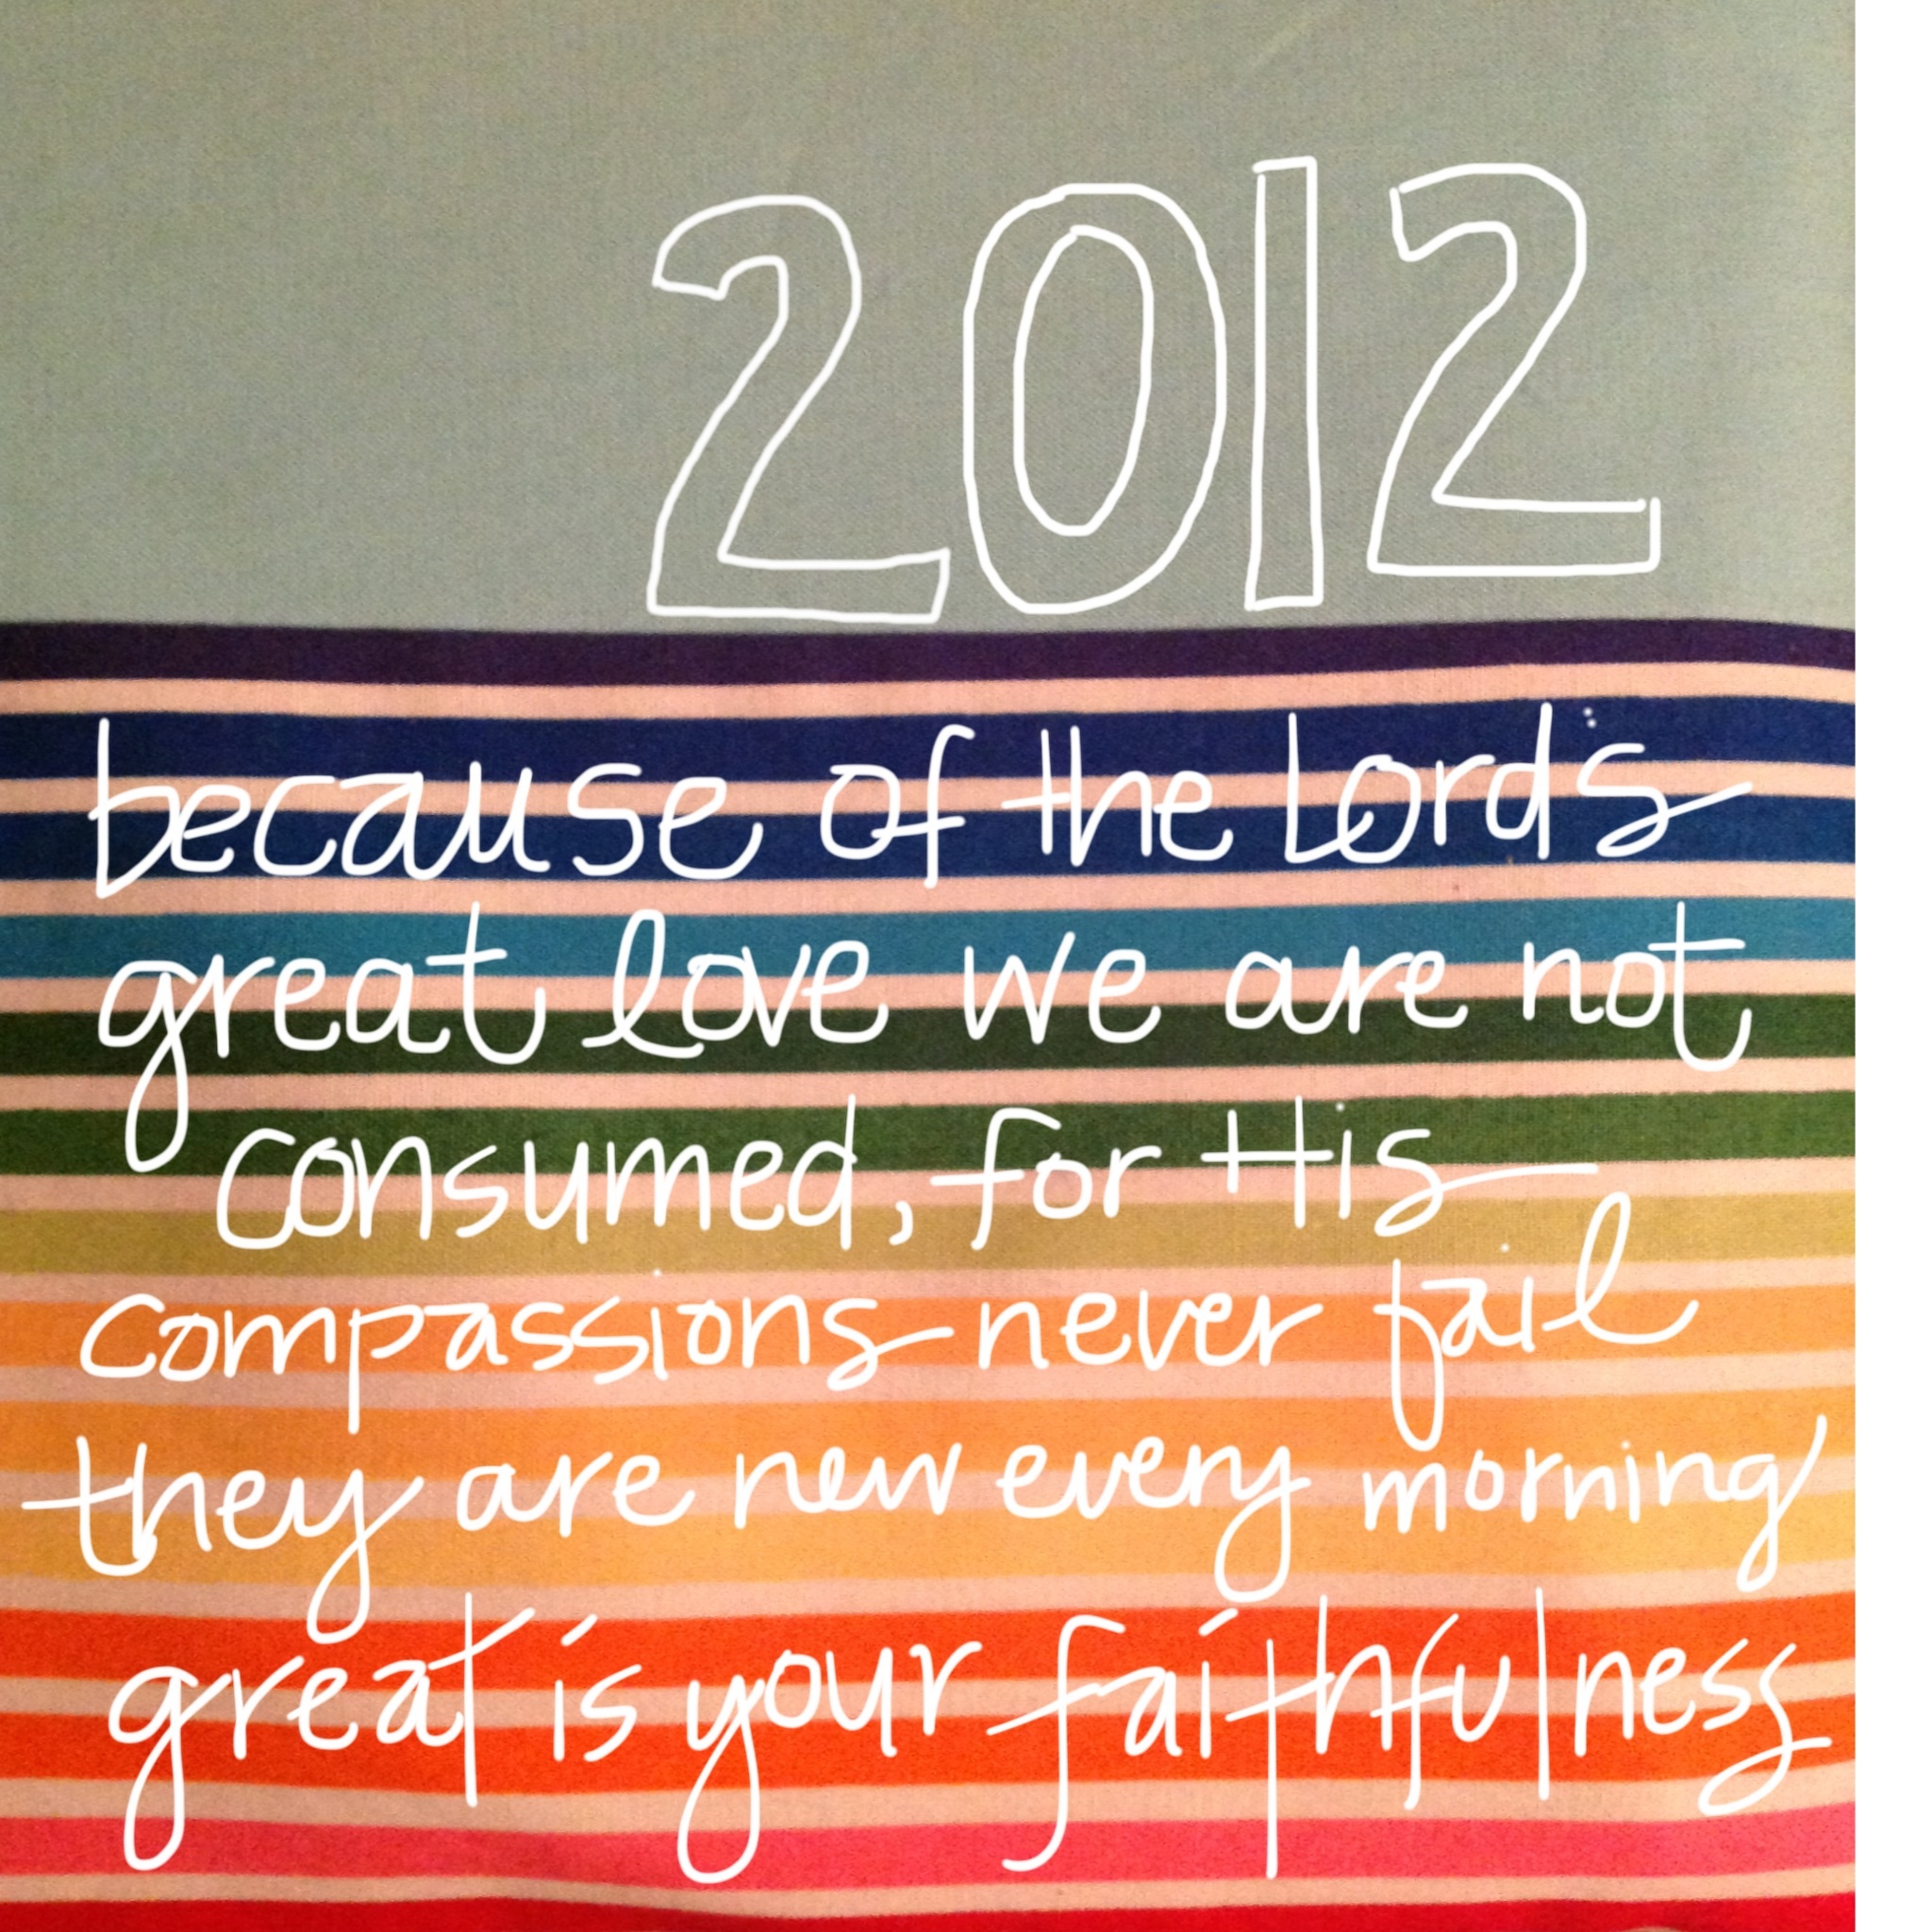 2012
because of the Lord's
great love we are not
consumed, for His
compassions never fail
they are new every morning
great is your faithfulness